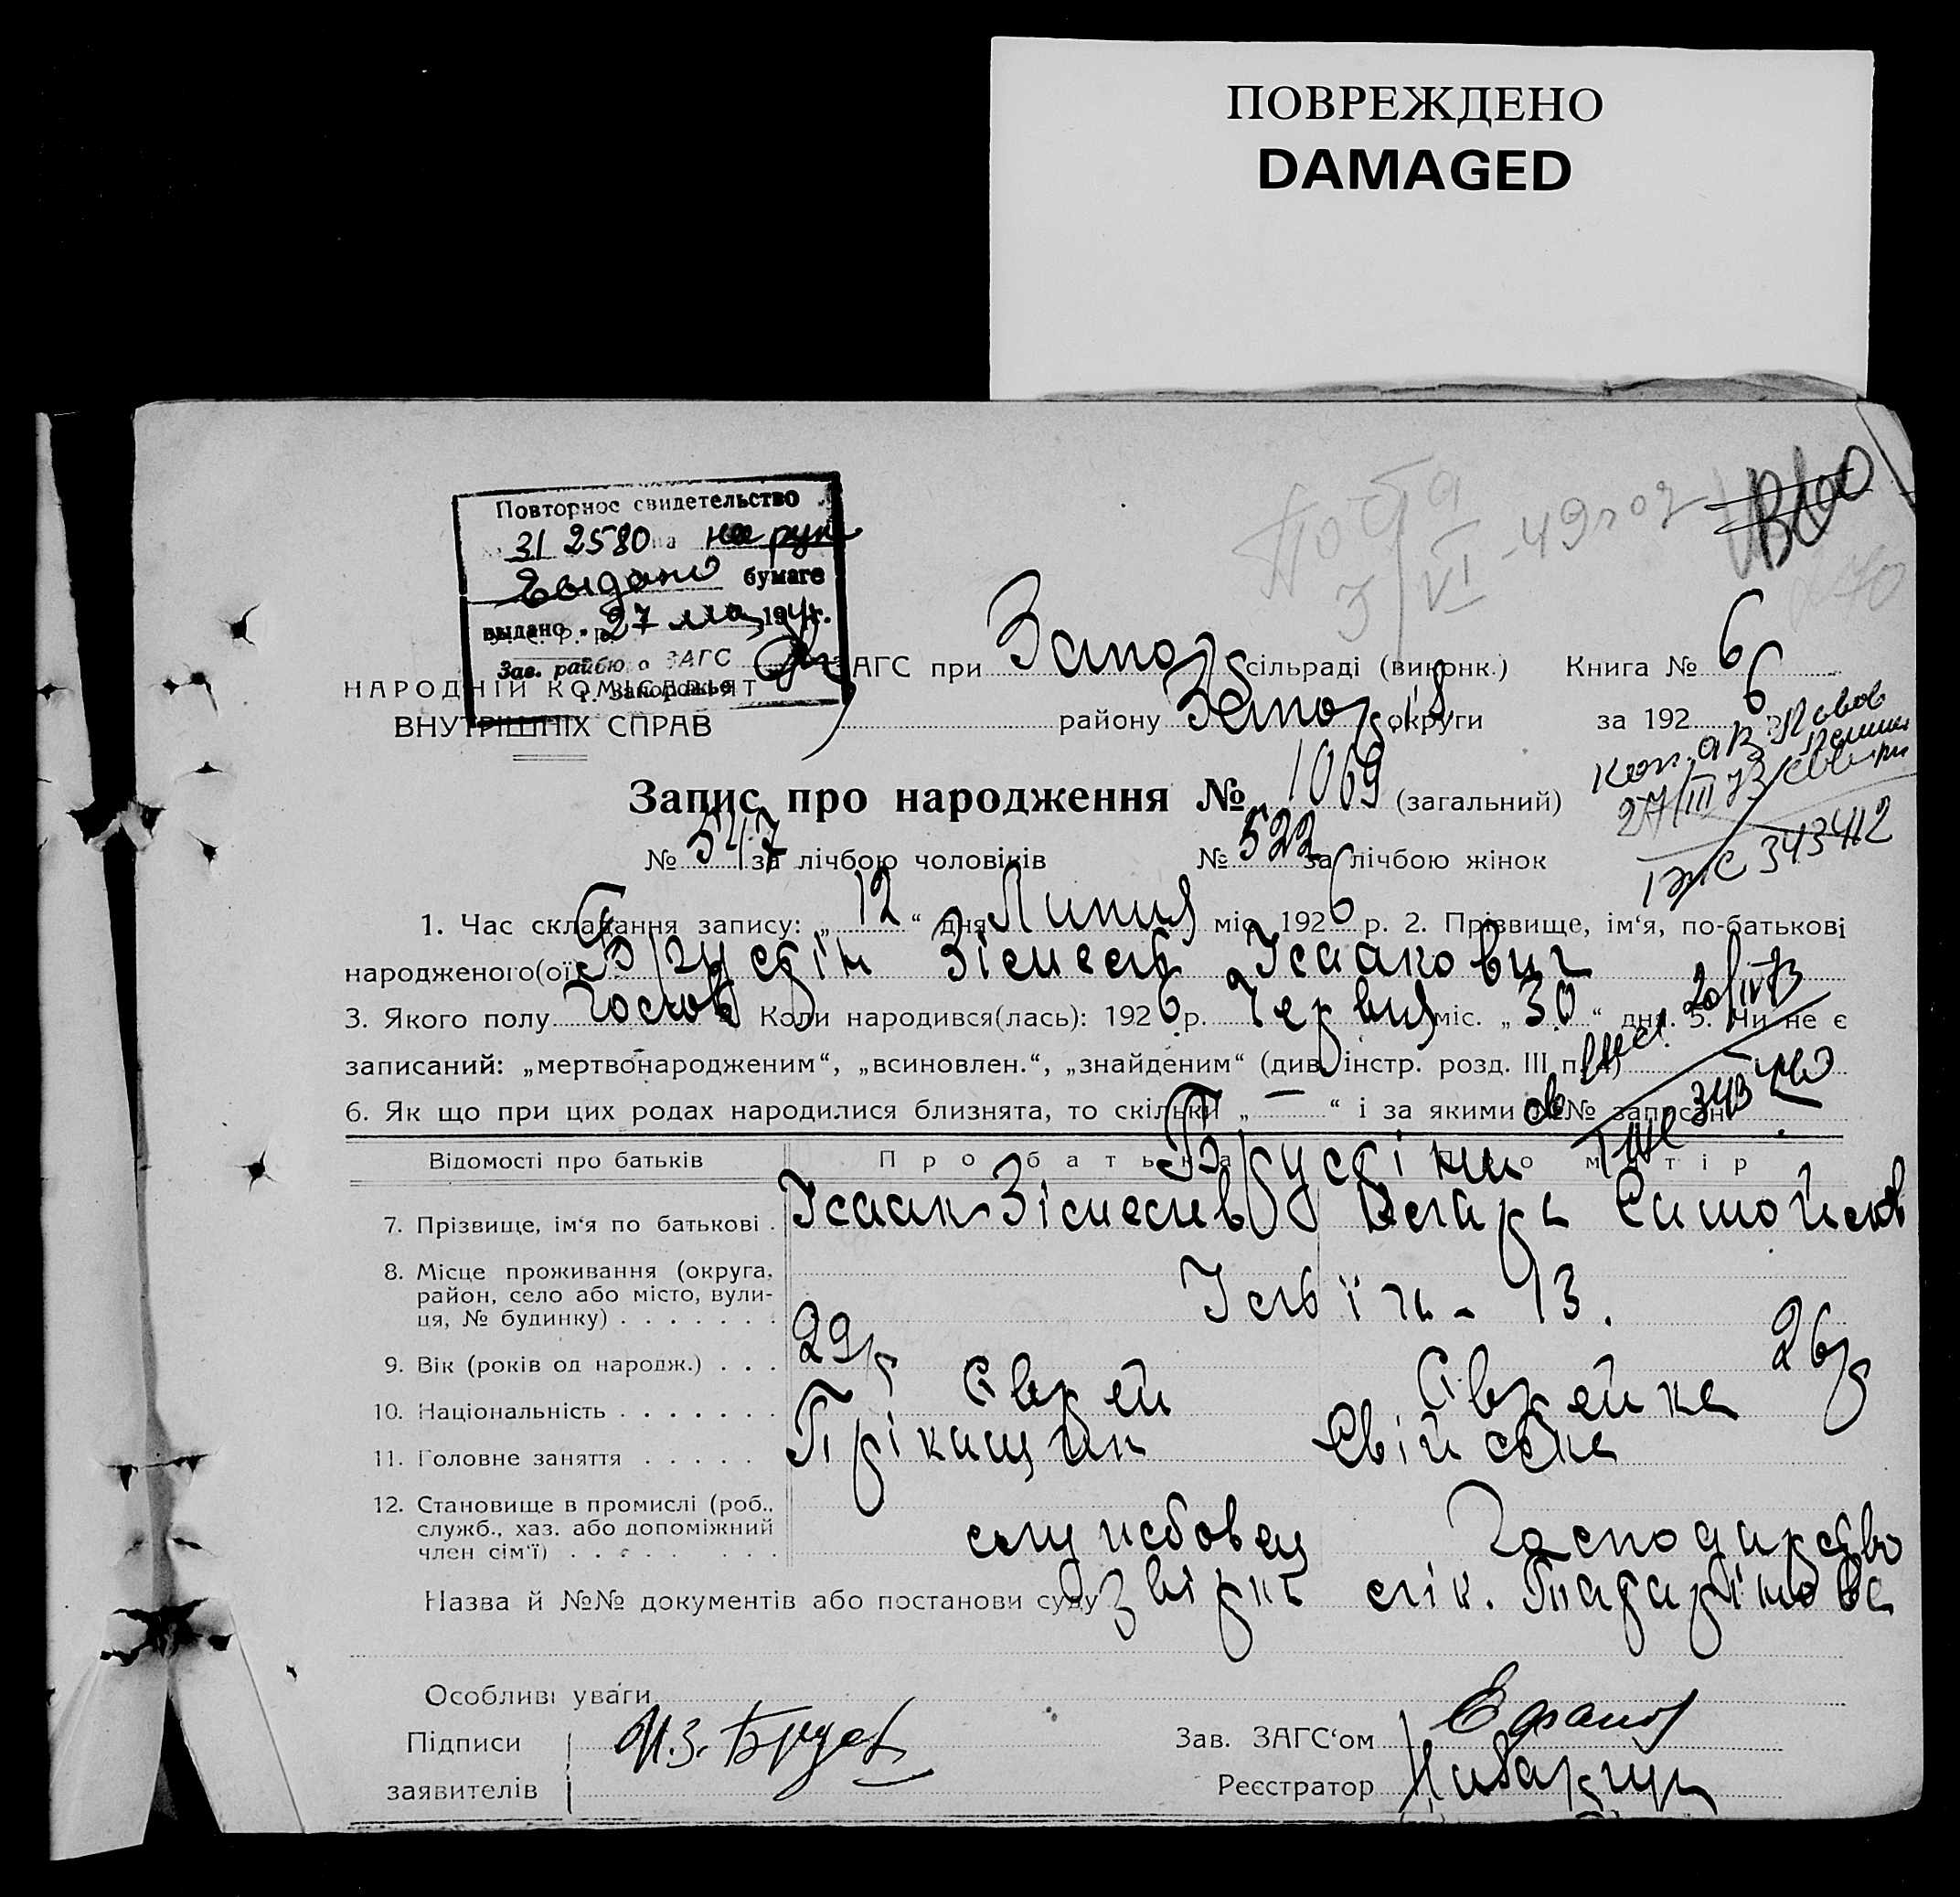 ПОВРЕЖДЕНО
DAMAGED
Повторное свидетельство
31 2580 на рук
выдано бумаге
выдано „27 мая 19 г.
Зав. райбюро ЗАГС
г. Запорожье
НАРОДНІЙ КОМІСАРІЯТ
ВНУТРІШНІХ СПРАВ
ЗАГС при Запор сільраді (виконк.) Книга № 6
району Запоріз округи за 1926 р.
3/VI-49
27/III 73
343412
Запис про народження № 1069 (загальний)
№ 547 за лічбою чоловіків № 522 за лічбою жінок
1. Час складання запису: „12“ дня Липня міс. 1926 р. 2. Прізвище, ім‘я, по-батькові
народженого(ої) Брустін Зісмель Ісаакович
3. Якого полу чолов Коли народився(лась): 1926 р. Червня міс. „30“ дня. 5. Чи не є
20/IV-73
записаний: „мертвонародженим“, „всиновлен.“, „знайденим“ (див. інстр. розд. III п. 4)
6. Як що при цих родах народилися близнята, то скільки „—“ і за якими №№ записані
Відомості про батьків Про батька Про матір
Брустіни
7. Прізвище, ім‘я по батькові . Ісаак Зісмелев
8. Місце проживання (округа, район, село або місто, вулиця, № будинку)
9. Вік (років од народж.) . . . 29 р 26 р
10. Національність Єврей Єврейка
11. Головне заняття Прікащик Свійське
12. Становище в промислі (роб., служб., хаз. або допоміжний член сім‘ї) службовец Господарство
Назва й №№ документів або постанови суду
Особливі уваги
Підписи И.З. Бруст Зав. ЗАГС‘ом
заявителів Реєстратор